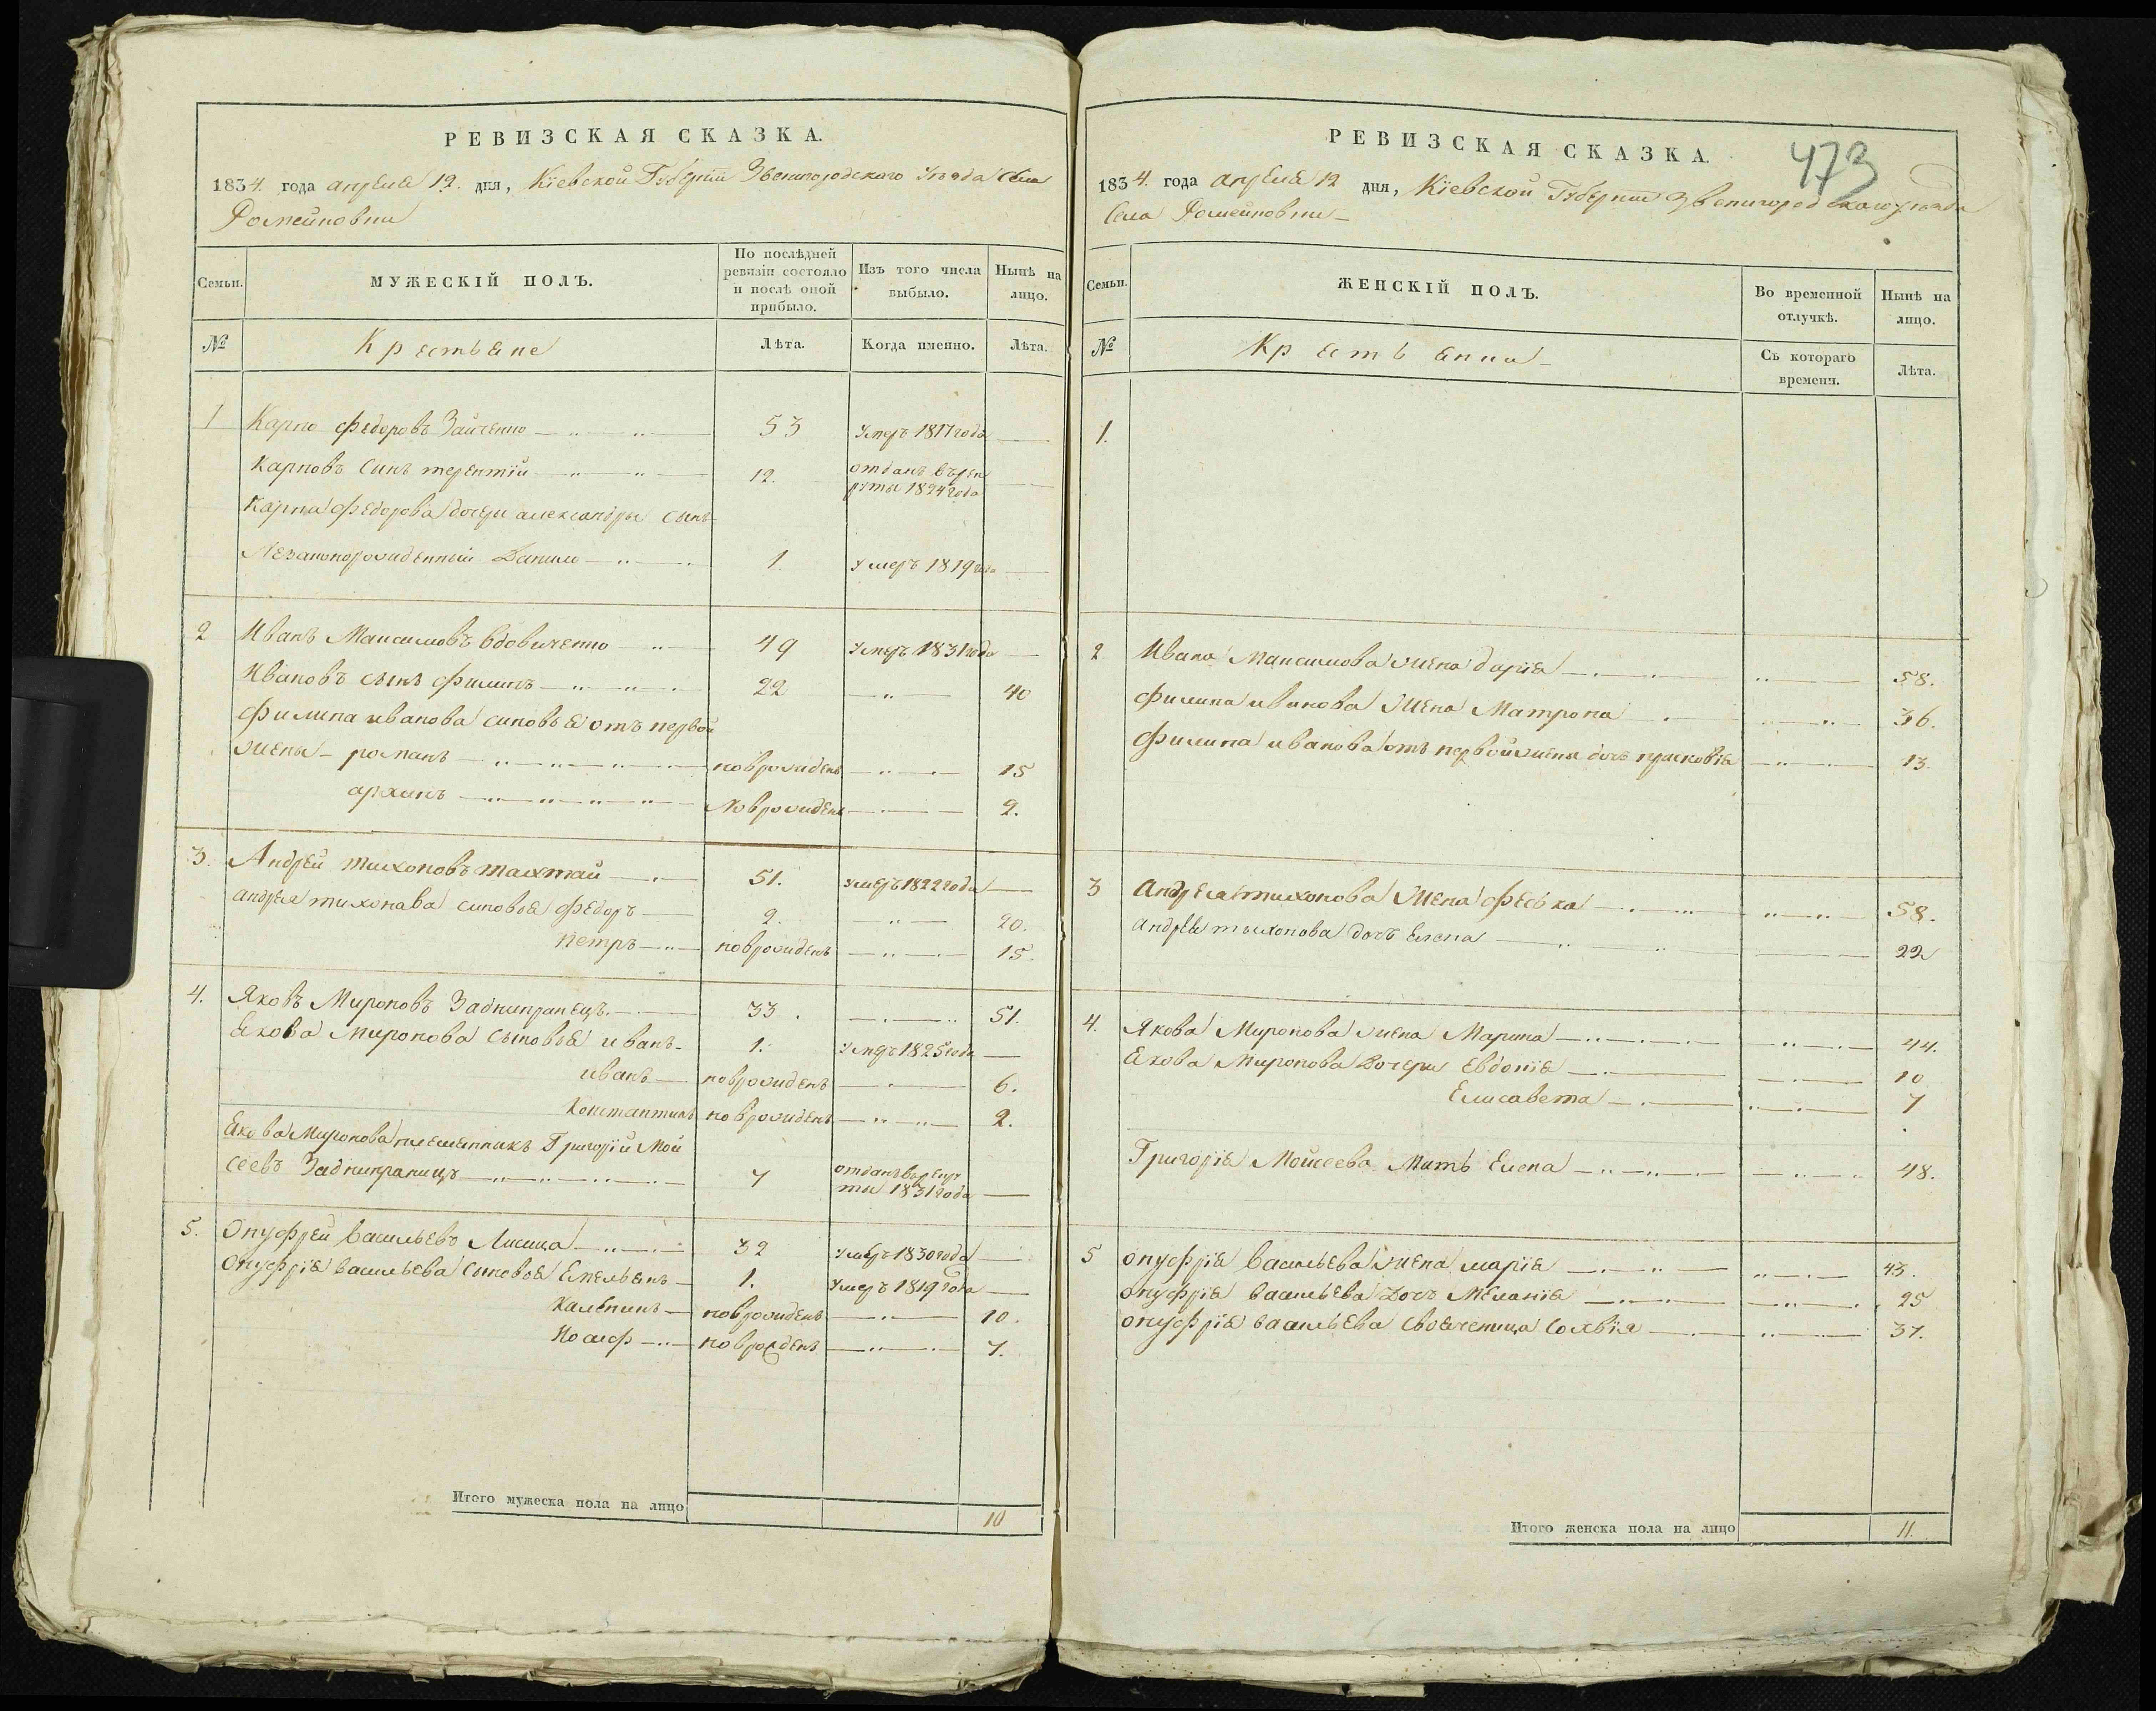 РЕВИЗСКАЯ СКАЗКА.
1834. года апреля 12. дня, Кіевской Губерніи Звенигородского Уезда Села
Ромейновки
Семьи. МУЖЕСКІЙ ПОЛЪ. По послѣдней ревизіи состояло и послѣ оной прибыло. Изъ того числа выбыло. Нынѣ на лицо.
№ Крестьяне Лѣта. Когда именно. Лѣта.
1 Карпо Федоровъ Зайченко 53 Умеръ 1817 года
Карповъ Синъ терентій 12. отданъ въ рек
руты 1824 года
Карпа Федорова дочери александры Сынъ
Незаконорожденный Данило 1 Умеръ 1819 года
2 Иванъ Максимовъ Вдовиченко 49 Умеръ 1831 года
Ивановъ сынъ Филипъ 22 40
Филипа иванова синовья отъ первой
жены романъ новорожденъ 15
архипъ новорожденъ 2.
3. Андрей тихоновъ тахтай 51. умеръ 1822 года
андрея тихонава синовья Федоръ 2. 20.
петръ новорожденъ 15.
4. Яковъ Мироновъ Заднипранецъ. 33. 51.
Якова Миронова сыновья иванъ 1. Умеръ 1825 года
иванъ новорожденъ 6.
Константинъ новорожденъ 2.
Якова Миронова племенникъ Григорій Мой
сеевъ Заднипраницъ 7 отданъ въ рекру
ти 1831 года
5. Онуфрей Васильевъ Лисица 32 умеръ 1830 года
Онуфрія Васильева сыновья Емельянъ 1. Умеръ 1819 года
Калѣникъ новорожденъ 10.
Иосифъ новорожденъ 7.
Итого мужеска пола на лицо 10
473
РЕВИЗСКАЯ СКАЗКА.
1834. года апреля 12 дня, Кіевской Губерніи Звенигородского уезда
Села Ромейновки
Семьи. ЖЕНСКІЙ ПОЛЪ. Во временной отлучкѣ. Нынѣ на лицо.
№ Крестьянки Съ котораго времени. Лѣта.
1.
2 Ивана Максимова жена дарія 58.
Филипа иванова жена Матрона 36.
Филипа иванова отъ первой жены дочь прасковія 13.
3 андрея тихонова жена феська 58.
андрея тихонова дочь Елена 22
4. Якова Миронова жена Марина 44.
Якова Миронова Дочери Евдокія 10
Елисавета 7
Григорія Мойсеева Мать Елена 48.
5 онуфрія Васильева жена марія 43.
онуфрія васильева Дочь Меланія 25
онуфрія васильева своячетица Софвія 37.
Итого женска пола на лицо 11.